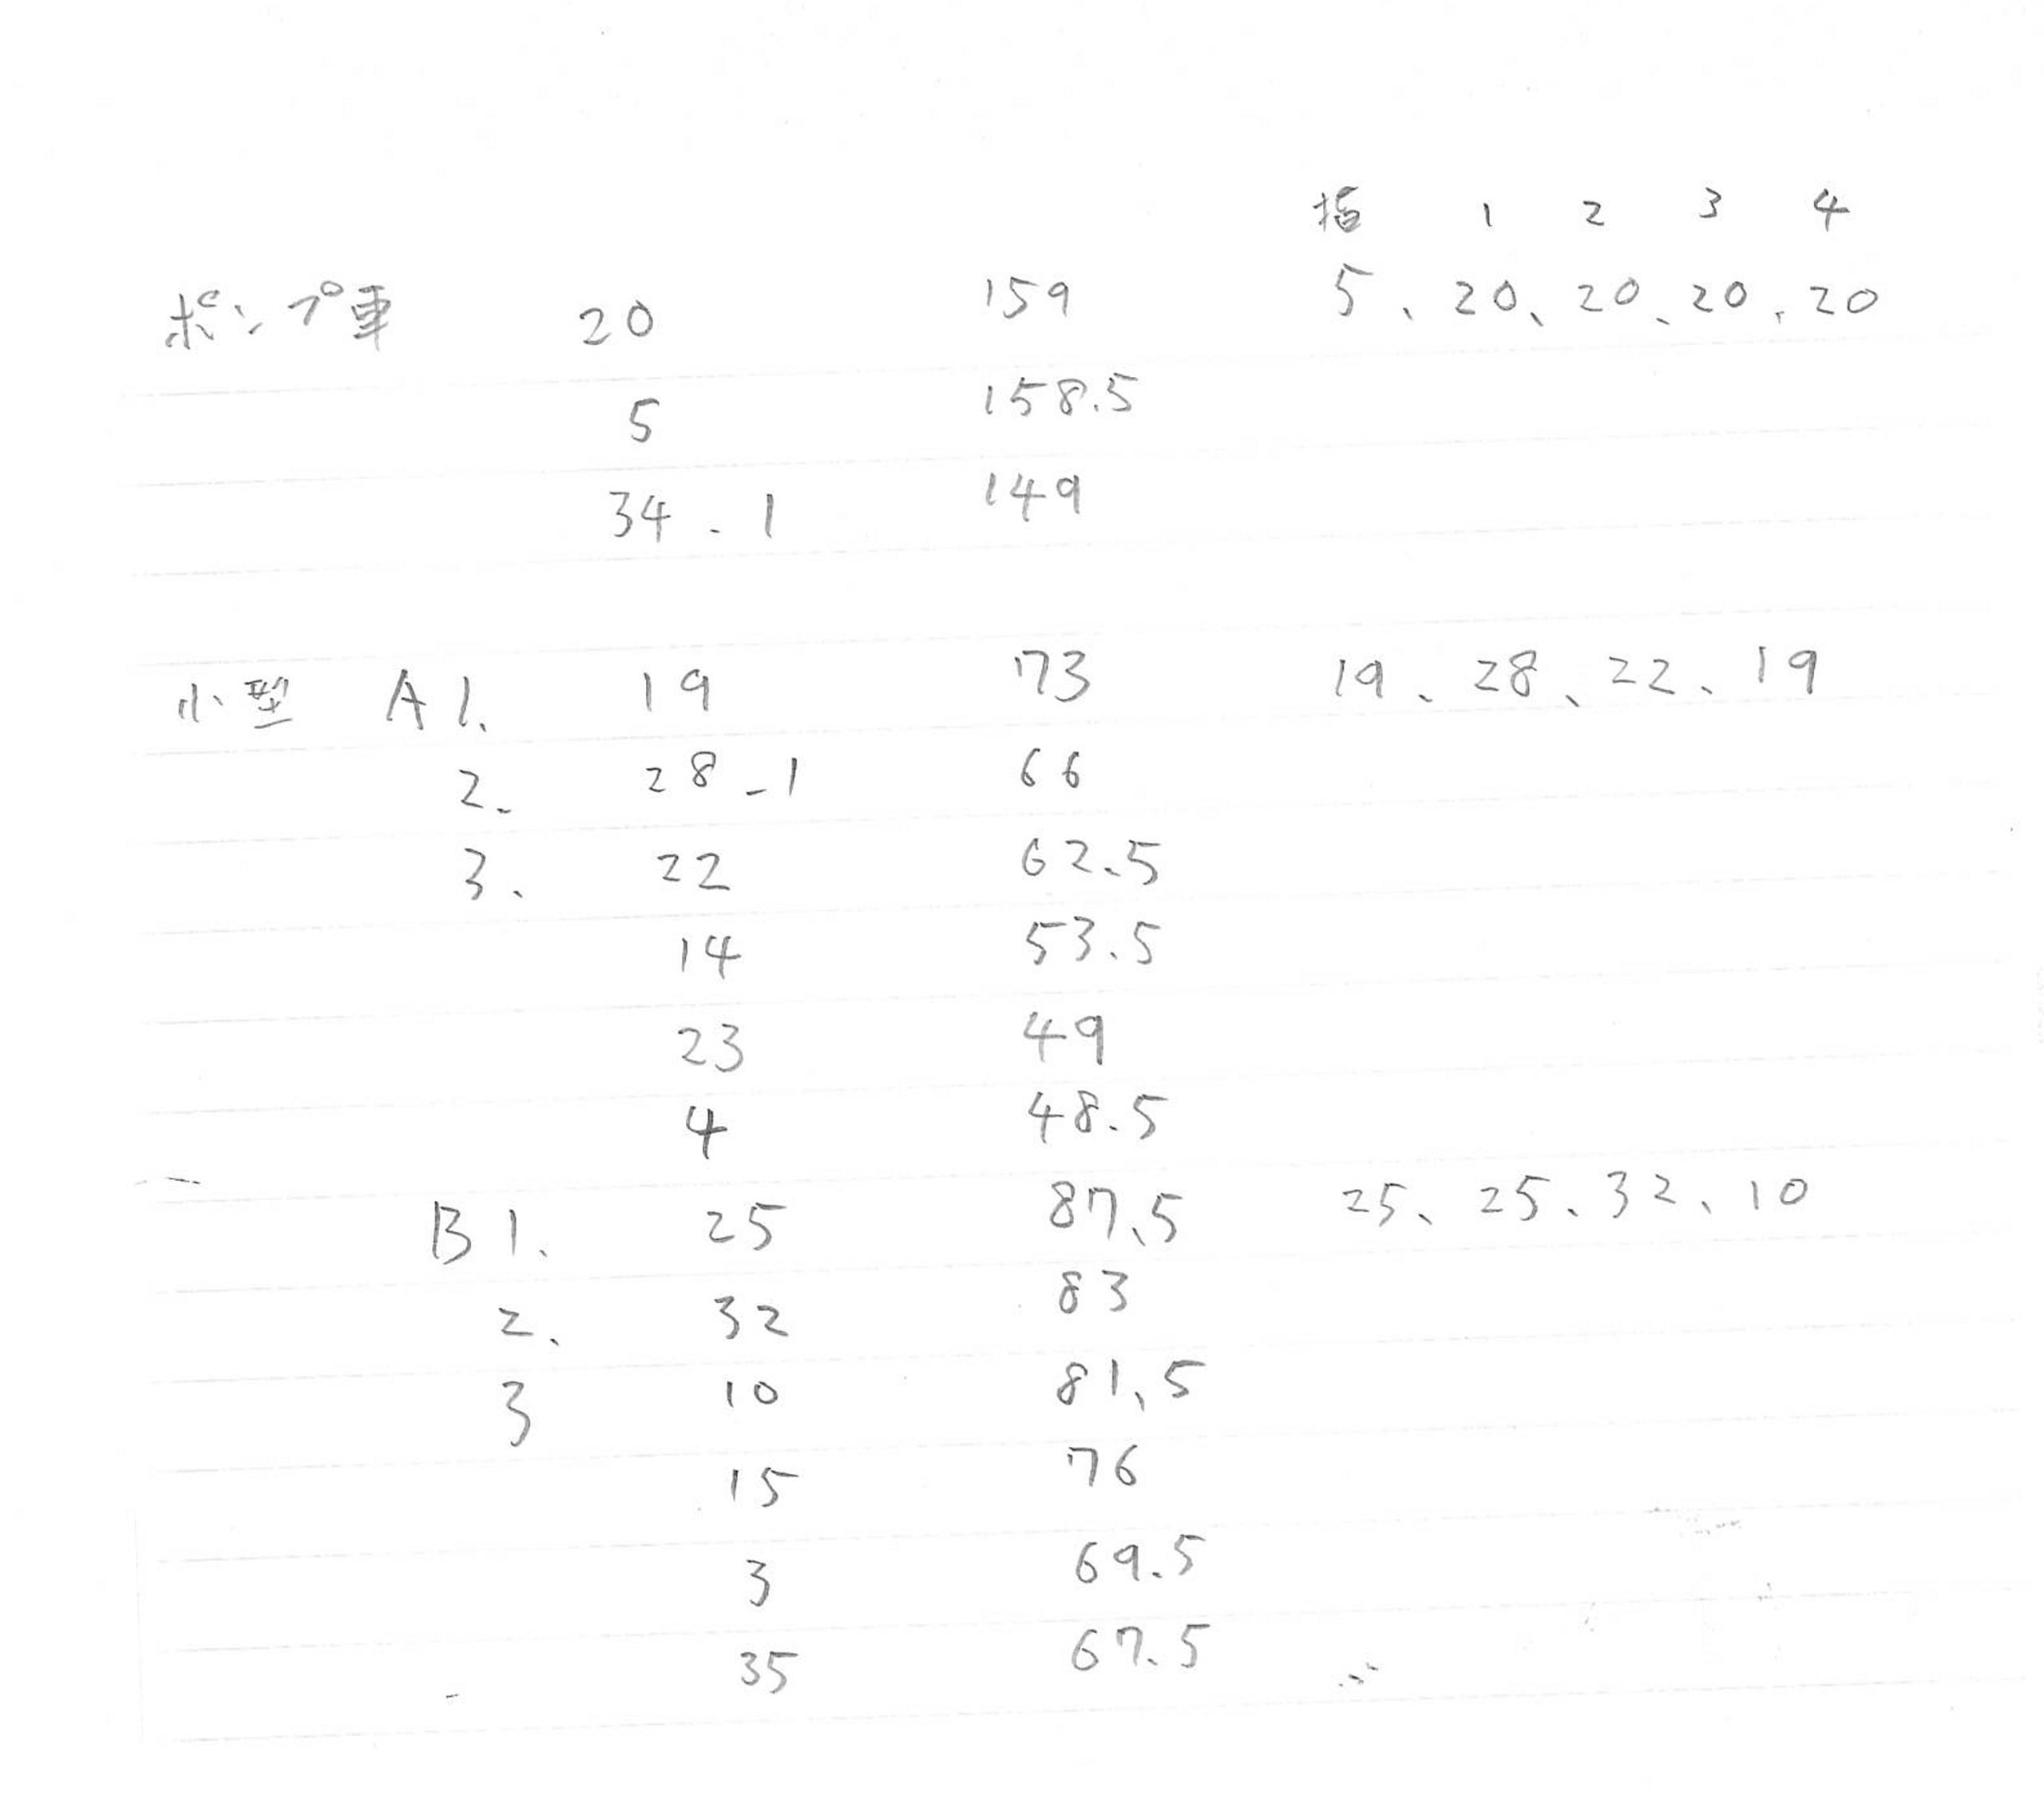 指 1 2 3 4
ポンプ車 20 159 5、20、20、20、20
5 158.5
34-1 149
小型 A 1. 19 73 19、28、22、19
2. 28-1 66
3. 22 62.5
14 53.5
23 49
4 48.5
B 1. 25 87.5 25、25、32、10
2. 32 83
3 10 81.5
15 76
3 69.5
35 67.5